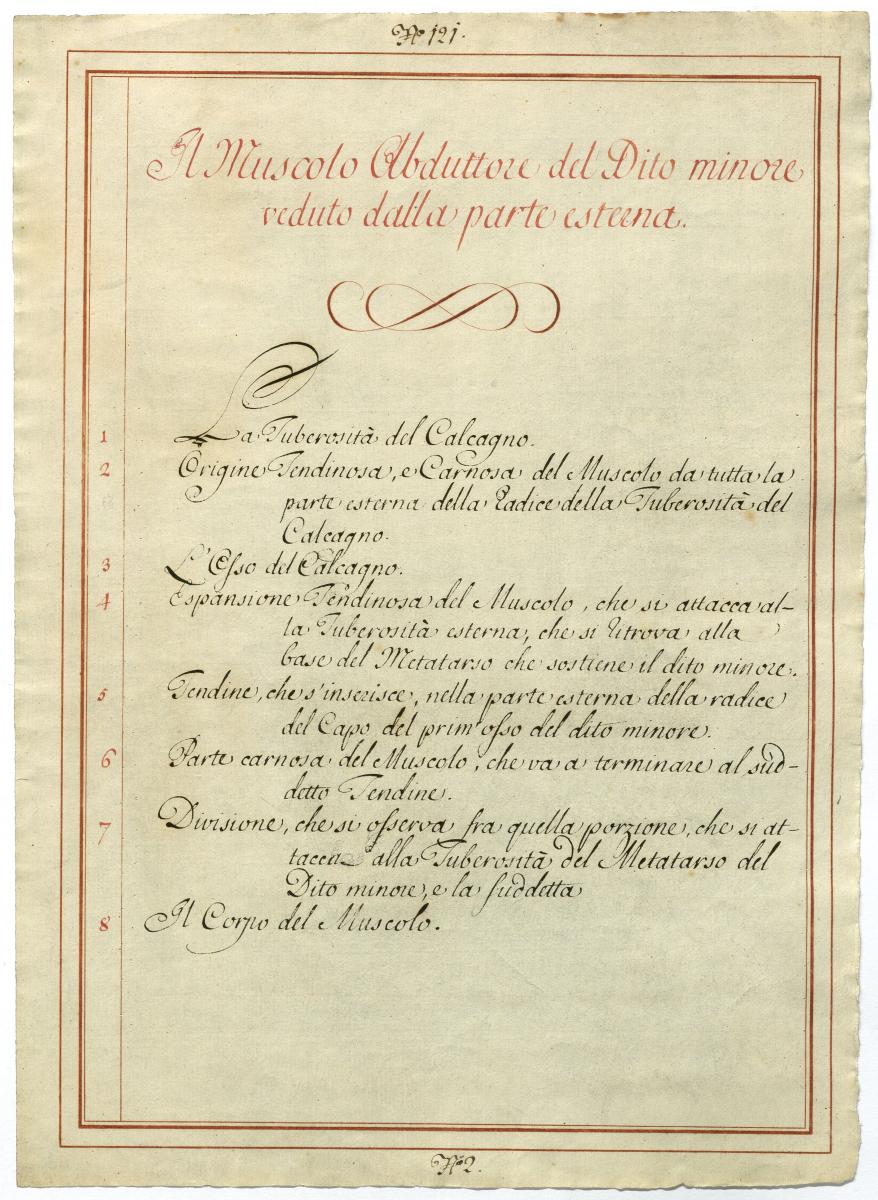 N.º 121.
Il Muscolo Abduttore del Dito minore
veduto dalla parte esterna.
1 La Tuberosità del Calcagno.
2 Origine Tendinosa, e Carnosa del Muscolo da tutta la
parte esterna della Radice della Tuberosità del
Calcagno.
3 L'Osso del Calcagno.
4 Espansione Tendinosa del Muscolo, che si attacca al-
la Tuberosità esterna, che si ritrova alla
base del Metatarso che sostiene il dito minore.
5 Tendine, che s'inserisce, nella parte esterna della radice
del Capo del prim'osso del dito minore.
6 Parte carnosa del Muscolo, che va a terminare al sud-
detto Tendine.
7 Divisione, che si osserva fra quella porzione, che si at-
tacca alla Tuberosità del Metatarso del
Dito minore, e la suddetta
8 Il Corpo del Muscolo.
N.º 2.